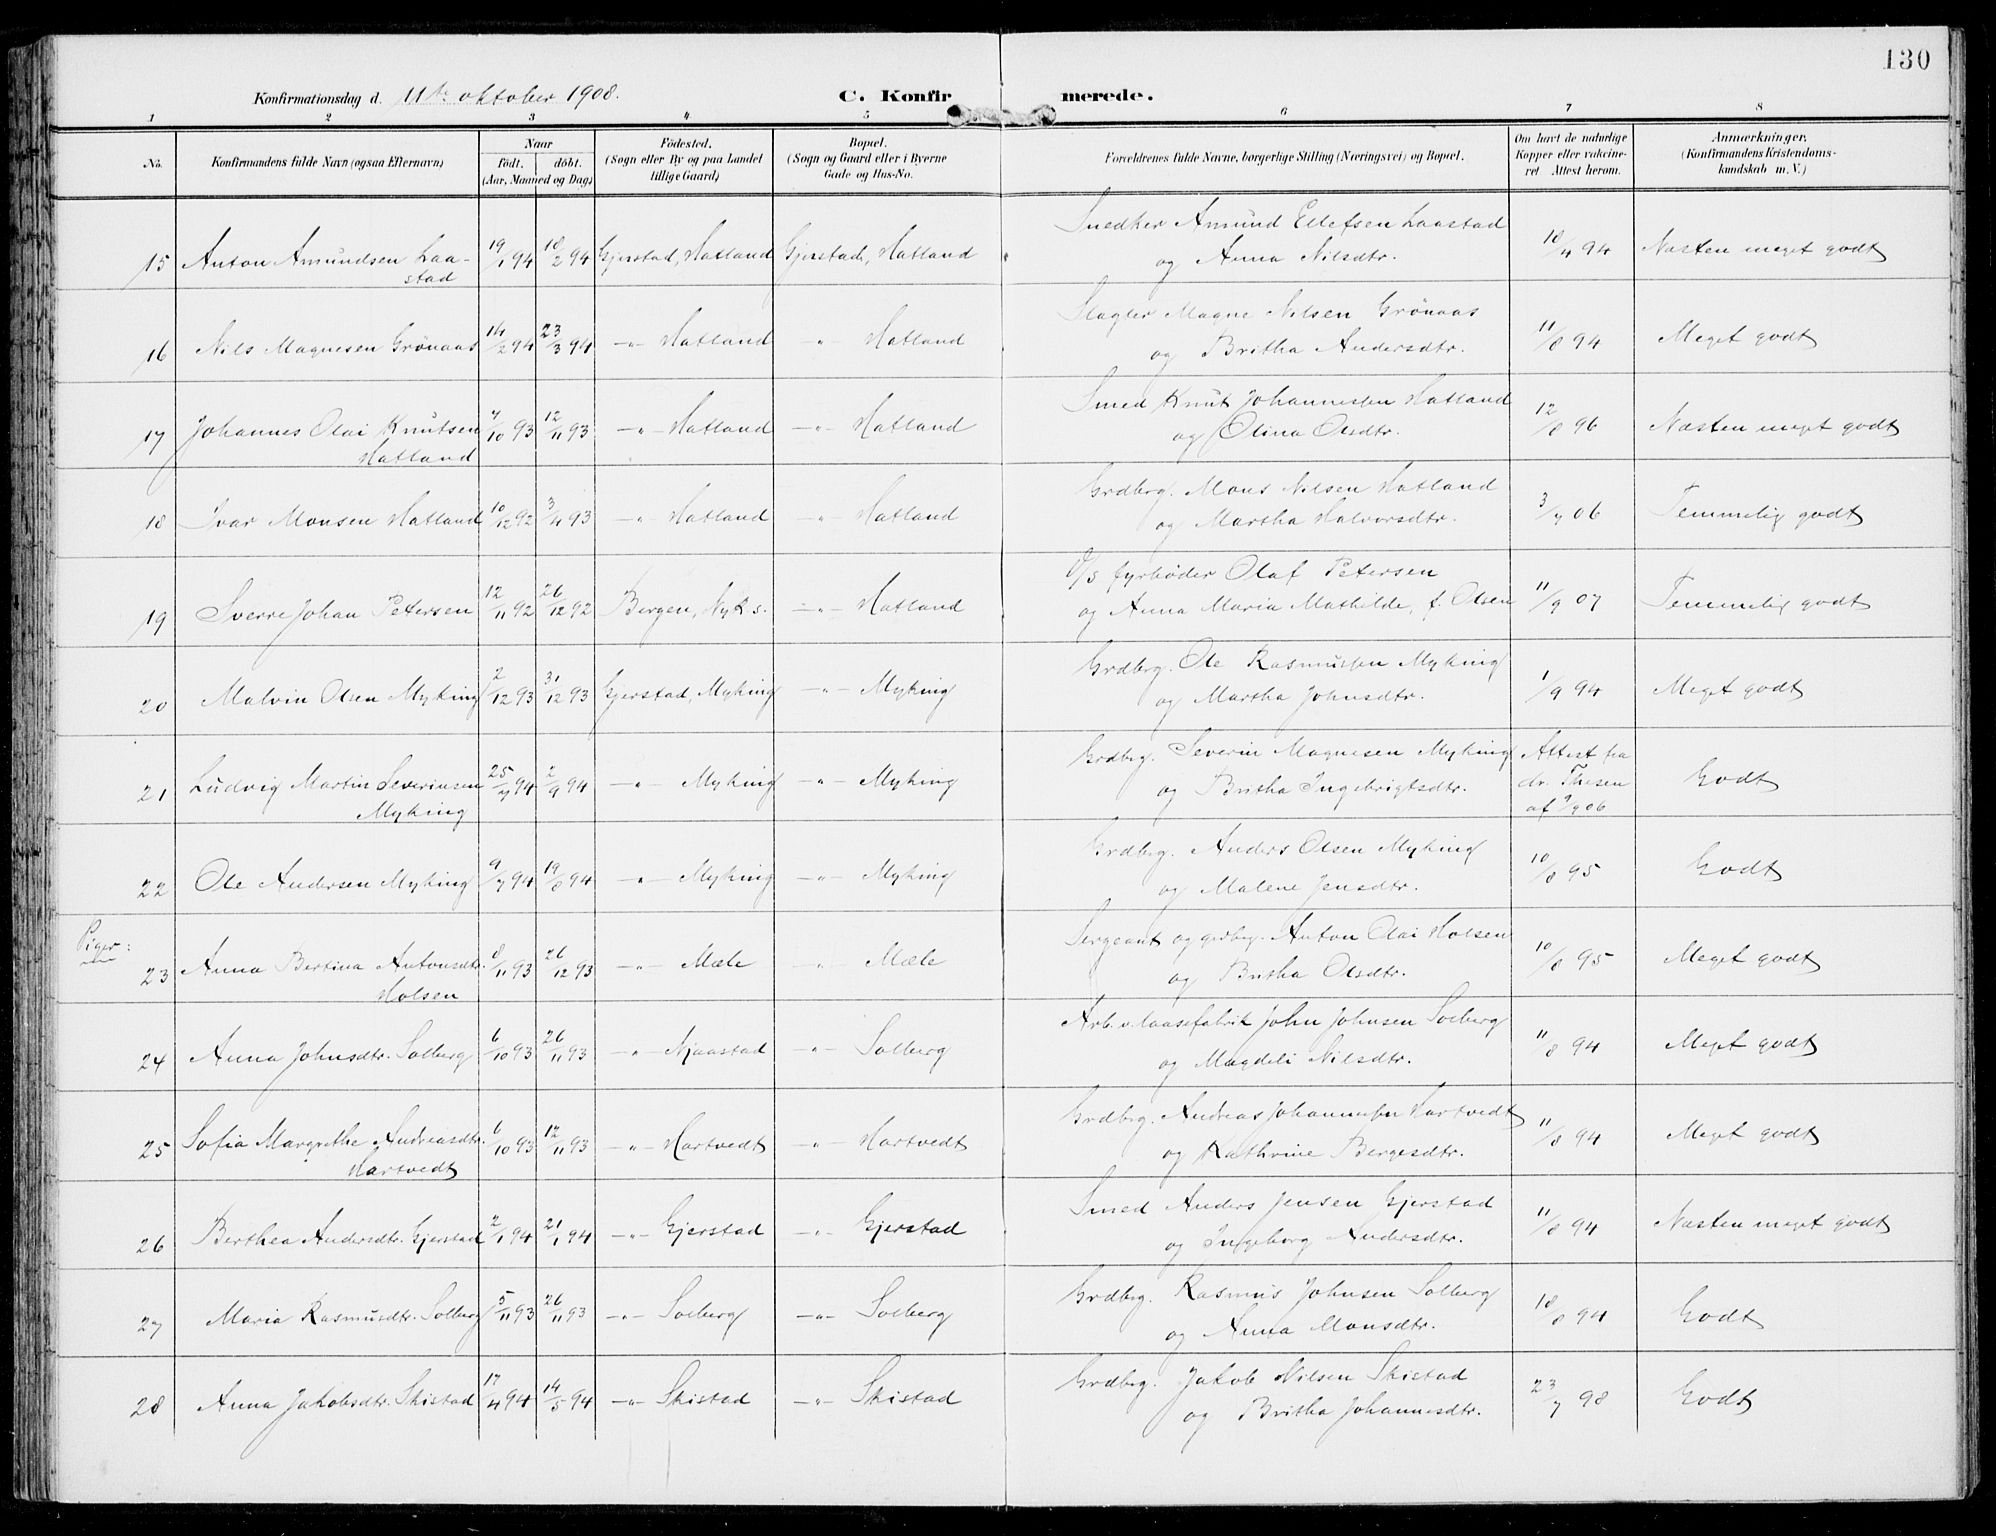 130
Konfirmationsdag d. 11te oktober 1908.
C. Konfirmerede.
1 2 3 4 5 6 7 8
No. Konfirmandens fulde Navn (ogsaa Efternavn) Naar født. døbt. (Aar, Maaned og Dag) Födested. (Sogn eller By og paa Landet tillige Gaard) Bopæl. (Sogn og Gaard eller i Byerne Gade og Hus-No. Forældrenes fulde Navne, borgerlige Stilling (Næringsvei) og Bopæl. Om havt de naturlige Kopper eller vakcineret. Attest herom. Anmærkninger. (Konfirmandens Kristendomskundskab m. V.)
15 Anton Amundsen Laastad 19/1 94 18/2 94 Gjerstad, Hatland Gjerstad, Hatland Snedker Amund Ellefsen Laastad og Anna Nilsdtr. 10/4 94 Næsten meget godt
16 Nils Magnesen Grönaas 14/2 94 23/3 94 -"- Hatland -"- Hatland Slagter Magne Nilsen Grönaas og Britha Andersdtr. 11/8 94 Meget godt
17 Johannes Olai Knutsen Hatland 7/10 93 12/11 93 -"- Hatland -"- Hatland Smed Knut Johannessen Hatland og Olina Olsdtr. 12/8 96 Næsten meget godt
18 Ivar Monsen Hatland 10/12 92 3/4 93 -"- Hatland -"- Hatland Grdbrg. Mons Nilsen Hatland og Martha Halvorsdtr. 3/7 06 Temmelig godt
19 Sverre Johan Petersen 12/11 92 26/12 92 Bergen, Nyk s. -"- Hatland D/s fyrbøder Olaf Petersen og Anna Maria Mathilde, f. Olsen 11/9 07 Temmelig godt
20 Malvin Olsen Myking 2/12 93 31/12 93 Gjerstad, Myking -"- Myking Grdbrg. Ole Rasmussen Myking og Martha Johnsdtr. 1/9 94 Meget godt
21 Ludvig Martin Severinsen Myking 25/7 94 2/9 94 -"- Myking -"- Myking Grdbrg. Severin Magnesen Myking og Britha Ingebrigtsdtr. Attest fra dr. Thesen af 9/9 06 Godt
22 Ole Andersen Myking 9/7 94 19/8 94 -"- Myking -"- Myking Grdbrg. Anders Olsen Myking og Malene Jensdtr. 10/8 95 Godt
Piger:
23 Anna Bertina Antonsdtr. Holsen 8/11 93 26/12 93 -"- Mæle -"- Mæle Sergeant og grdbrg. Anton Olai Holsen og Britha Olsdtr. 10/8 95 Meget godt
24 Anna Johnsdtr. Solberg 6/10 93 26/11 93 -"- Njaastad -"- Solberg Arb. v. laasefabrik John Johnsen Solberg og Magdeli Nilsdtr. 11/8 94 Meget godt
25 Sofia Margrethe Andreasdtr. Hartvedt 6/10 93 12/11 93 -"- Hartvedt -"- Hartvedt Grdbrg. Andreas Johannesen Hartvedt og Kathrine Bergesdtr. 11/8 94 Meget godt
26 Berthea Andersdtr. Gjerstad 2/1 94 21/1 94 -"- Gjerstad -"- Gjerstad Smed Anders Jensen Gjerstad og Ingeborg Andersdtr. 11/8 94 Næsten meget godt
27 Maria Rasmusdtr. Solberg 5/11 93 26/11 93 -"- Solberg -"- Solberg Grdbrg. Rasmus Johnsen Solberg og Anna Monsdtr. 18/8 94 Godt
28 Anna Jakobsdtr. Skistad 17/4 94 14/5 94 -"- Skistad -"- Skistad Grdbrg. Jakob Nilsen Skistad og Britha Johannesdtr. 23/7 98 Godt